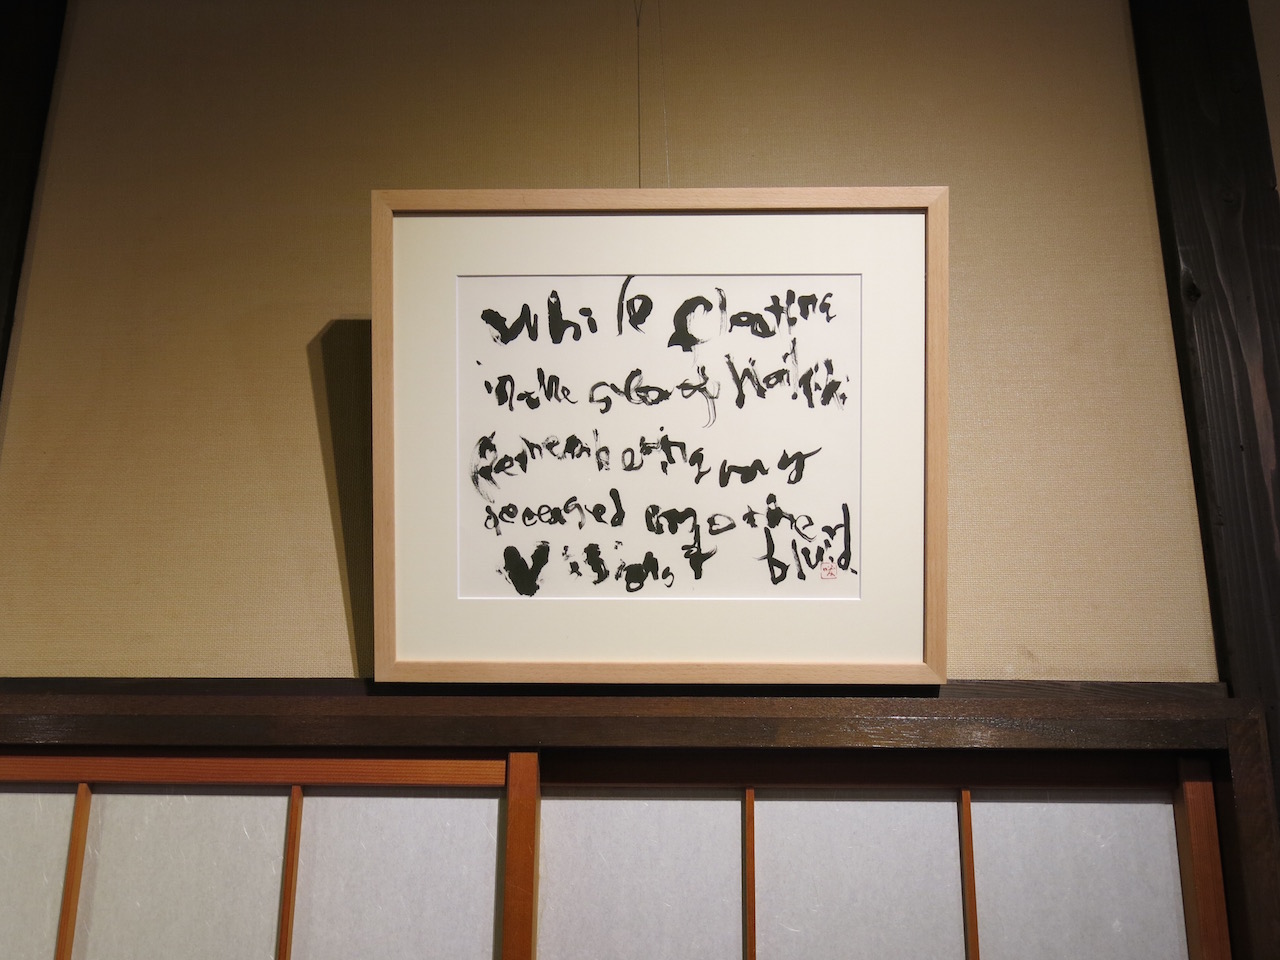 while floating
in the sea of Waikiki
Remembering my
deceased mother
vision blurred